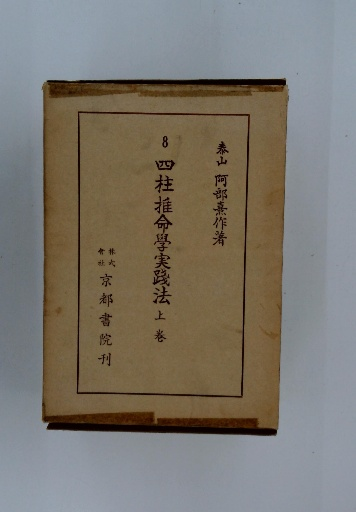 泰山 阿部熹作著
8 四柱推命學実践法 上巻
株式會社 京都書院刊